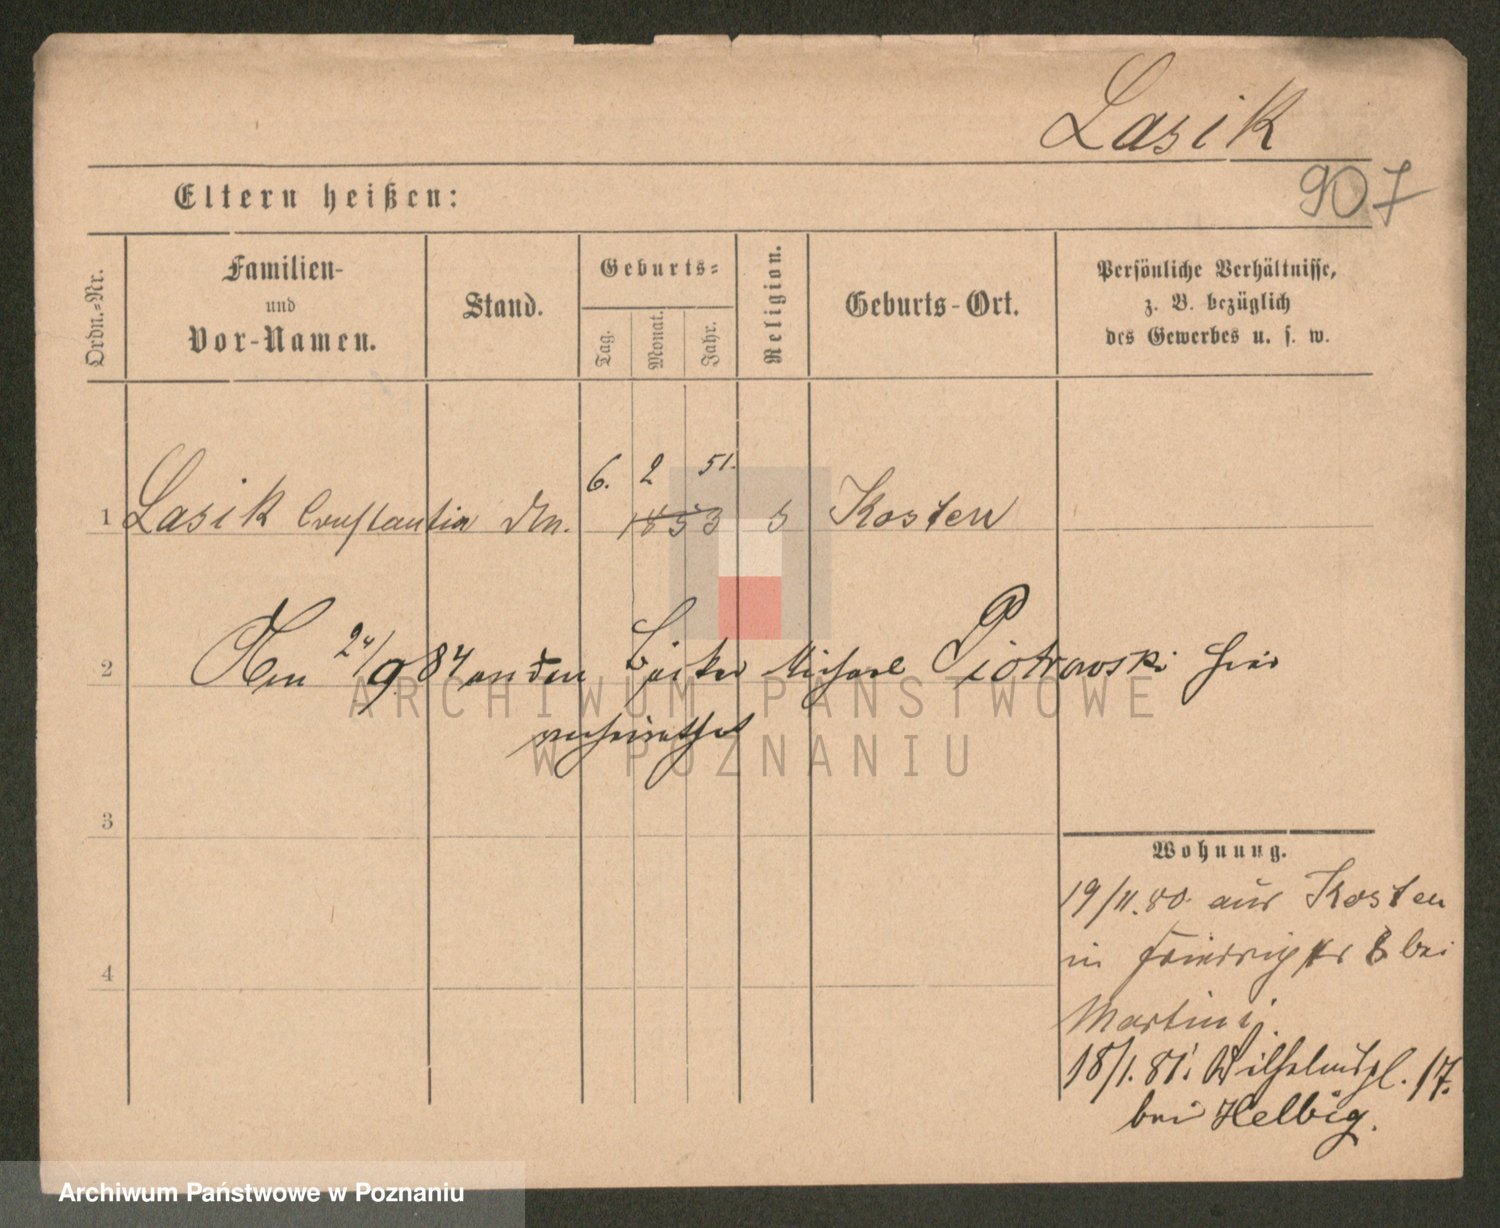 Lasik
907
Eltern heißen:
Ordn.-Nr.
Familien-
und
Vor-Namen.
Stand.
Geburts-
Tag.
Monat.
Jahr.
Religion.
Geburts-Ort.
Persönliche Verhältnisse,
z. B. bezüglich
des Gewerbes u. s. w.
6. 2 51.
1 Lasik Constantia 1853 Kosten
2 Am 24/9 84 an den Bäcker Michael Piotrowski hier
verheirathet
3
4
Wohnung.
19/11.80. aus Kosten
in bei
Martini
18/1.81. Wilhelmspl. 17.
bei Helbig.
ARCHIWUM PAŃSTWOWE
W POZNANIU
Archiwum Państwowe w Poznaniu